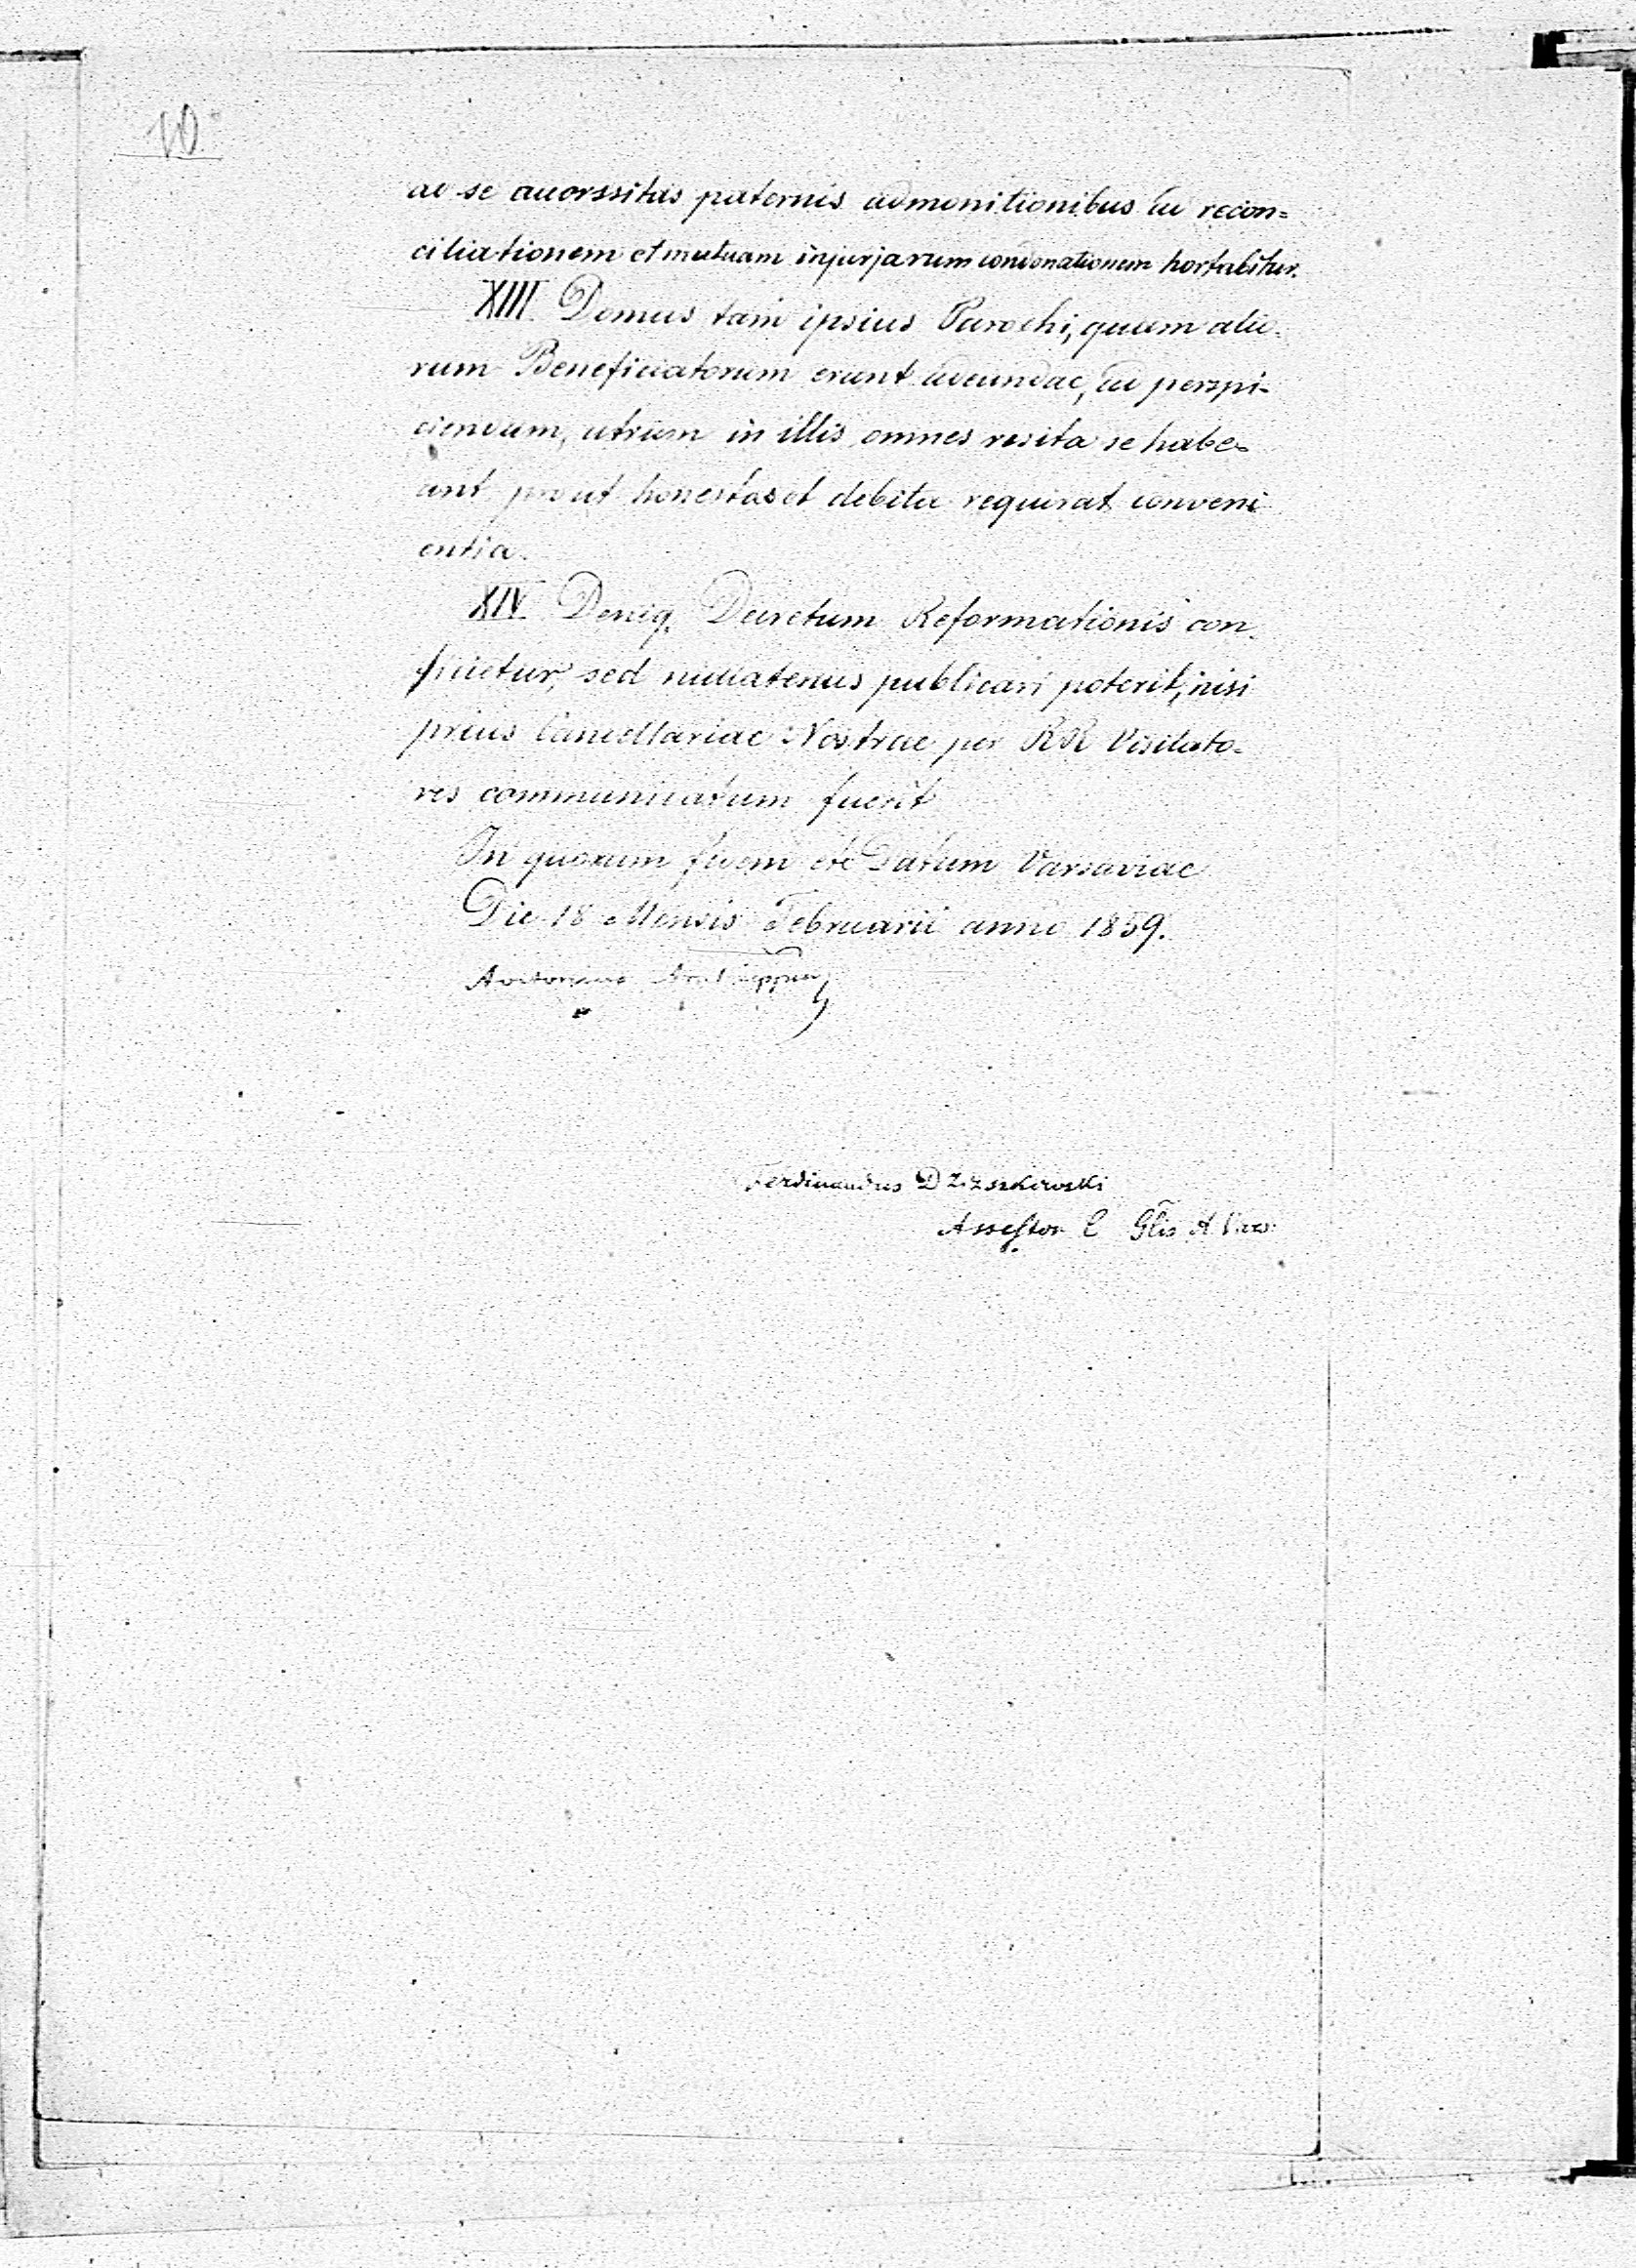 10
ad se accersitas paternis admonitionibus ad recon=
ciliationem et mutuam injurjarum condonationem hortabitur.
XIII. Domus tam ipsius Parochi, quam alio-
rum Beneficiatorum erunt adeundae, ad perspi-
ciendum, utrum in illis omnes res ita se habe-
ant prout honestas et debita requirat conveni
entia.
XIV. Deniq. Decretum Reformationis con-
ficietur, sed nullatenus publicari poterit, nisi
prius Cancellariae Nostrae per RR Visitato-
res communicatum fuerit
In quorum fidem etc Datum Varsaviae
Die 18 Mensis Februarii anno 1859.
Antonius
Ferdinandus
Assessor C Glis A Vars: